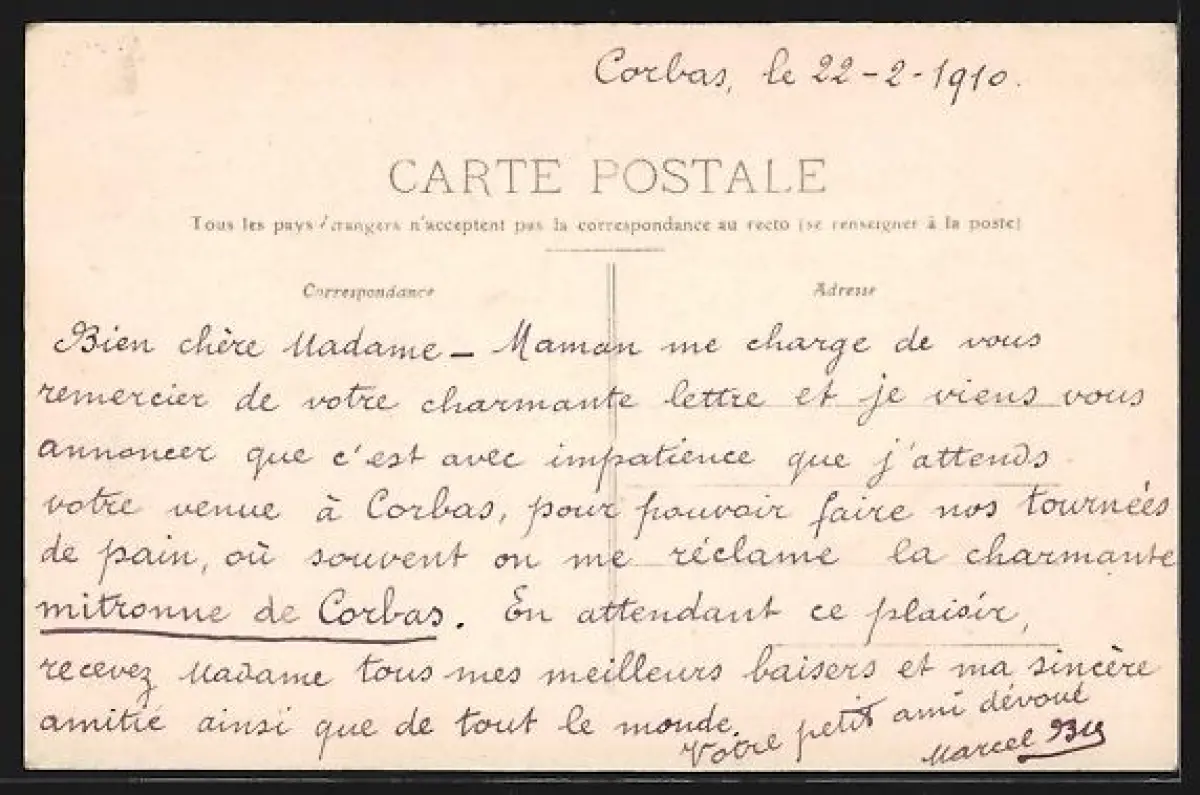 Corbas, le 22-2-1910.
CARTE POSTALE
Tous les pays étrangers n'acceptent pas la correspondance au recto (se renseigner à la poste)
Correspondance
Adresse
Bien chère Madame - Maman me charge de vous
remercier de votre charmante lettre et je viens vous
annoncer que c'est avec impatience que j'attends
votre venue à Corbas, pour pouvoir faire nos tournées
de pain, où souvent on me réclame la charmante
mitronne de Corbas. En attendant ce plaisir,
recevez Madame tous mes meilleurs baisers et ma sincère
amitié ainsi que de tout le monde.
Votre petit ami dévoué
Marcel